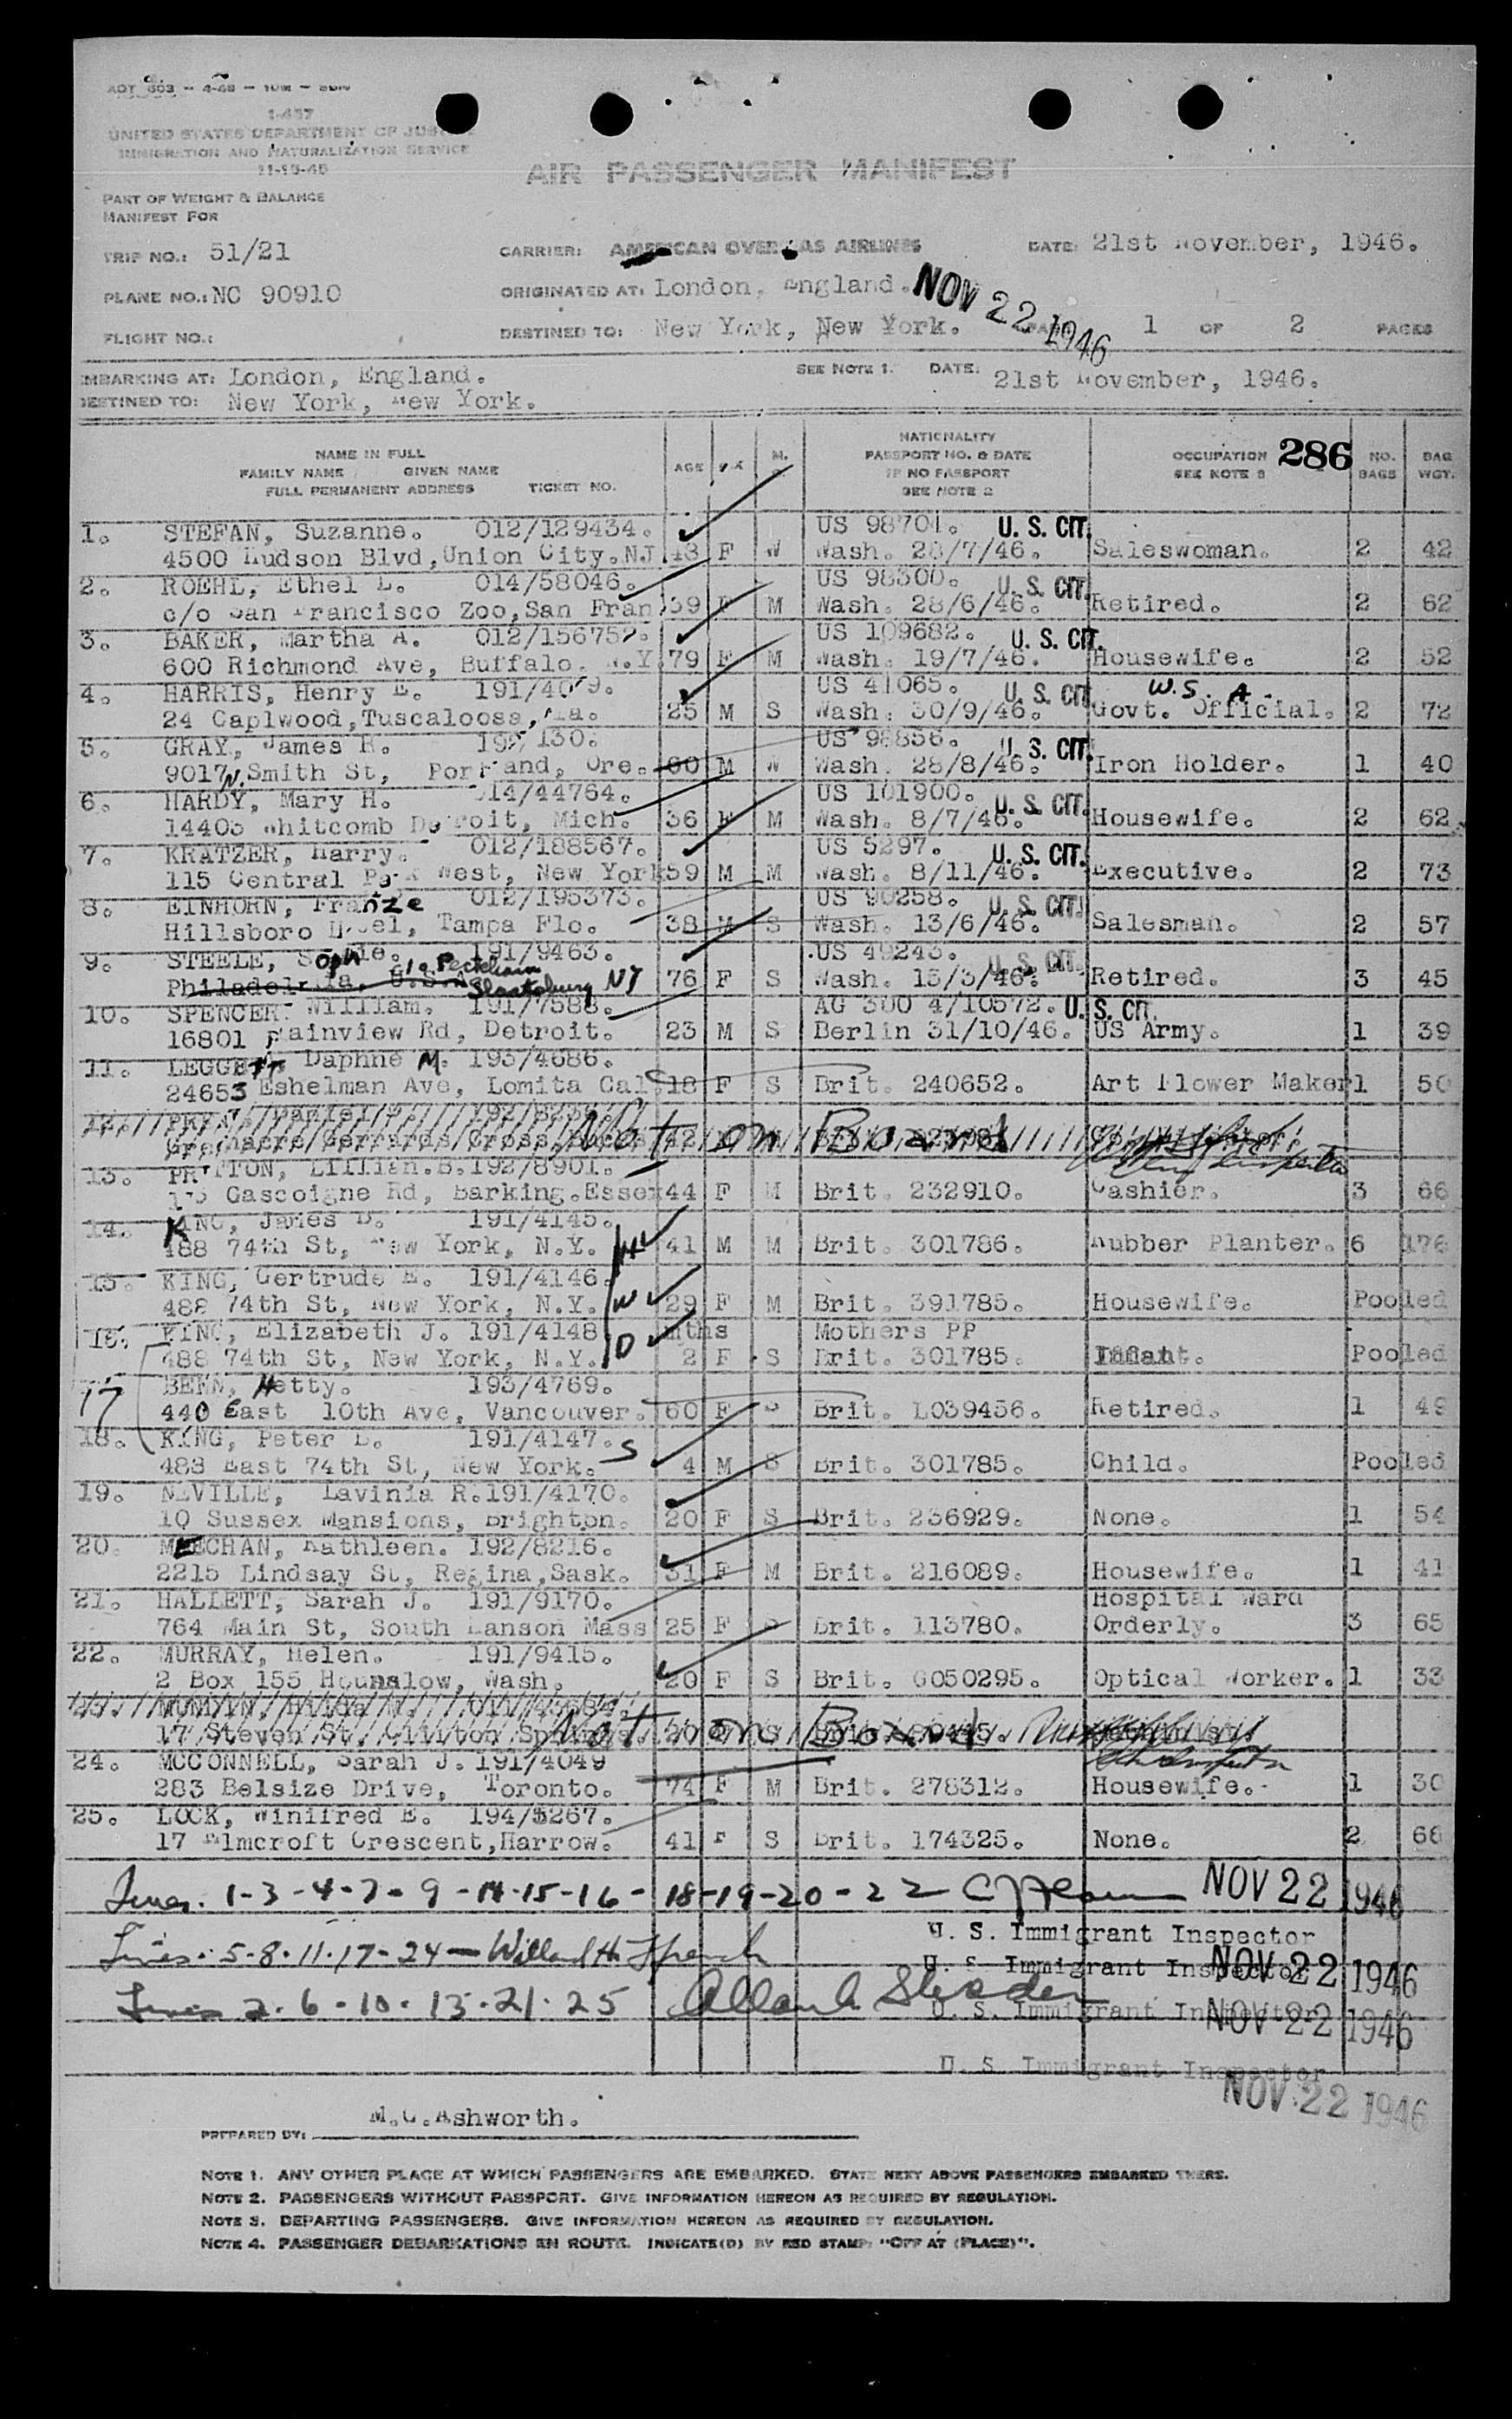 1-457
UNITED STATES DEPARTMENT OF JUSTICE
IMMIGRATION AND NATURALIZATION SERVICE
11-15-45
AIR PASSENGER MANIFEST
PART OF WEIGHT & BALANCE
MANIFEST FOR
TRIP NO.: 51/21 CARRIER: AMERICAN OVERSEAS AIRLINES DATE: 21st November, 1946.
PLANE NO.: NC 90910 ORIGINATED AT: London, England. NOV 22 1946
FLIGHT NO.: DESTINED TO: New York, New York. PAGE 1 OF 2 PAGES
EMBARKING AT: London, England. SEE NOTE 1. DATE: 21st November, 1946.
DESTINED TO: New York, New York.
NAME IN FULL
FAMILY NAME GIVEN NAME
FULL PERMANENT ADDRESS TICKET NO. AGE M. NATIONALITY
PASSPORT NO. & DATE
IF NO PASSPORT
SEE NOTE 2 OCCUPATION
SEE NOTE 3 286 NO.
BAGS BAG
WGT.
1. STEFAN, Suzanne. 012/129434. US 98701. U. S. CIT.
4500 Hudson Blvd, Union City.NJ. 43 F W Wash. 23/7/46. Saleswoman. 2 42
2. ROEHL, Ethel L. 014/58046. US 98300. U. S. CIT.
c/o San Francisco Zoo, San Fran. 39 F M Wash. 28/6/46. Retired. 2 62
3. BAKER, Martha A. 012/156752. US 109682. U. S. CIT.
600 Richmond Ave, Buffalo. N.Y. 79 F M Wash. 19/7/46. Housewife. 2 52
4. HARRIS, Henry E. US 41065. U. S. CIT W.S.A.
24 Caplwood, Tuscaloosa, Ala. 25 M S Wash. 30/9/46. Govt. Official. 2 72
5. GRAY, James H. US 98856. U. S. CIT.
9017 N. Smith St, Portland, Ore. 60 M W Wash. 28/8/46. Iron Holder. 1 40
6. HARDY, Mary H. 014/44764. US 101900. U. S. CIT.
14403 Whitcomb Detroit, Mich. 36 F M Wash. 8/7/46. Housewife. 2 62
7. KRATZER, Harry. 012/188567. US 5297. U. S. CIT.
115 Central Park West, New York 59 M M Wash. 8/11/46. Executive. 2 73
8. EINHORN, Franze 012/195373. US 90258. U. S. CIT.
Hillsboro Hotel, Tampa Flo. 38 M S Wash. 13/6/46. Salesman. 2 57
9. STEELE, Sophie. 191/9463. US 49243. U. S. CIT.
Philadelphia, U.S.A. c/o Peckham Slaatsburg NY 76 F S Wash. 15/3/46. Retired. 3 45
10. SPENCER. William. 191/7588. AG 300 4/10572. U. S. CIT.
16801 Plainview Rd, Detroit. 23 M S Berlin 31/10/46. US Army. 1 39
11. LEGGETT, Daphne M. 193/4686.
24653 Eshelman Ave, Lomita Cal 18 F S Brit. 240652. Art Flower Maker 1 50
12. Not on Board
Gerrards Cross, Bucks 42
13. PRITTON, Lillian.B. 192/8901.
Gascoigne Rd, Barking.Essex 44 F M Brit. 232910. Cashier. 3 66
14. KING, James D. 191/4145.
488 74th St, New York, N.Y. H 41 M M Brit. 301786. Rubber Planter. 6 176
15. KING, Gertrude E. 191/4146.
488 74th St, New York, N.Y. W 29 F M Brit. 391785. Housewife. Pooled
16. KING, Elizabeth J. 191/4148 mths Mothers PP
488 74th St, New York, N.Y. D 2 F S Brit. 301785. Infant. Pooled
17 BENN, Hetty. 193/4769.
440 East 10th Ave, Vancouver. 60 F S Brit. L039456. Retired. 1 49
18. KING, Peter D. 191/4147. S
483 East 74th St, New York. 4 M S Brit. 301785. Child. Pooled
19. NEVILLE, Lavinia R. 191/4170.
10 Sussex Mansions, Brighton. 20 F S Brit. 236929. None. 1 54
20. MEECHAN, Kathleen. 192/8216.
2215 Lindsay St, Regina, Sask. 31 F M Brit. 216089. Housewife. 1 41
21. HALLETT, Sarah J. 191/9170. Hospital Ward
764 Main St, South Hanson Mass 25 F S Brit. 113780. Orderly. 3 65
22. MURRAY, Helen. 191/9415.
2 Box 155 Hounslow, Wash. 20 F S Brit. G050295. Optical Worker. 1 33
23. Not on Board
17 Steven St. Clifton Springs. 20
24. MCCONNELL, Sarah J. 191/4049
283 Belsize Drive, Toronto. 74 F M Brit. 278312. Housewife. 1 30
25. LOCK, Winifred E. 194/5267.
17 Elmcroft Crescent, Harrow. 41 F S Brit. 174325. None. 2 66
Lines. 1-3-4-7-9-14-15-16-18-19-20-22 NOV 22 1946
U. S. Immigrant Inspector
Lines. 5-8-11-17-24 — Willard H. French U. S. Immigrant Inspector NOV 22 1946
Lines 2-6-10-13-21-25 U. S. Immigrant Inspector NOV 22 1946
U. S. Immigrant Inspector
NOV 22 1946
M.C.Ashworth.
PREPARED BY:
NOTE 1. ANY OTHER PLACE AT WHICH PASSENGERS ARE EMBARKED. STATE NEXT ABOVE PASSENGERS EMBARKED THERE.
NOTE 2. PASSENGERS WITHOUT PASSPORT. GIVE INFORMATION HEREON AS REQUIRED BY REGULATION.
NOTE 3. DEPARTING PASSENGERS. GIVE INFORMATION HEREON AS REQUIRED BY REGULATION.
NOTE 4. PASSENGER DEBARKATIONS EN ROUTE. INDICATE(D) BY RED STAMP: "OFF AT (PLACE)".